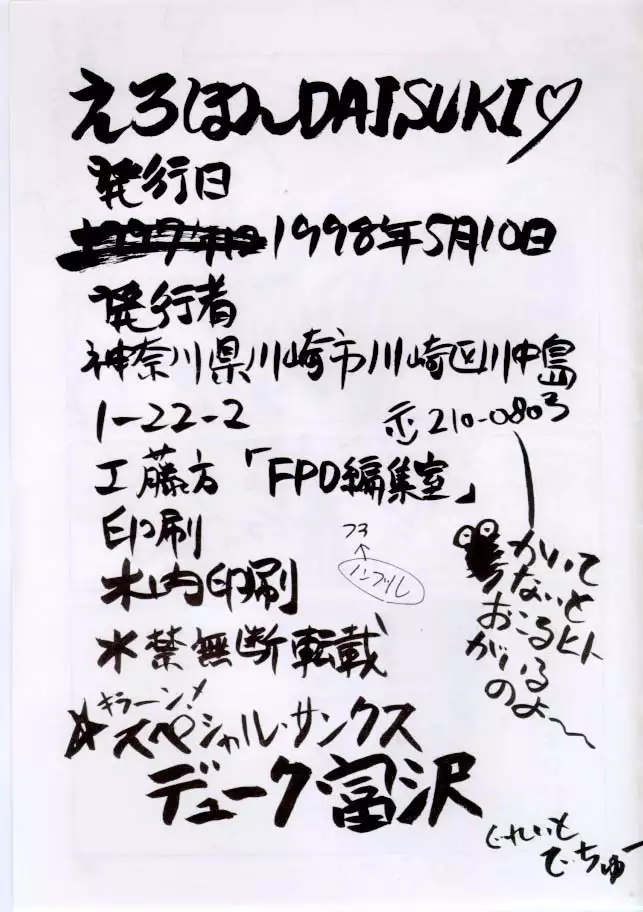 えろほんDAISUKI♡
発行日
1998年5月10日
発行者
神奈川県川崎市川崎区川中島
1-22-2 〒210-0803
工藤方「FPO編集室」
印刷
木内印刷
禁無断転載
フヨ
ノンブル
かいて
ないと
おこるヒト
がいる
のよ〜
キラーン!
☆スペシャル・サンクス
デューク・富沢